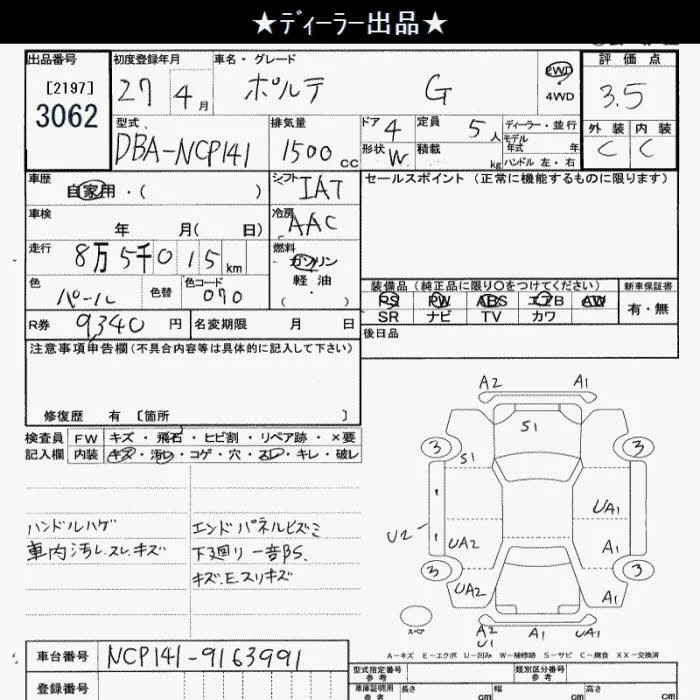 ★ディーラー出品★
出品番号 初度登録年月 車名・グレード 評価点
[2197]
3062
27 4月 ポルテ G 2WD 4WD 3.5
型式 排気量 ドア 4 定員 5人 ディーラー・並行 外装 内装
DBA-NCP141 1500cc 形状 W 積載 kg モデル年式 年 ハンドル 左・右 C C
車歴 自家用・( ) シフト IAT セールスポイント (正常に機能するものに限ります)
車検 年 月( 日) 冷房 AAC
走行 8万5千015km 燃料 ガソリン 軽油 ( )
色 パール 色替 色コード 070 装備品 (純正品に限り○をつけてください) 新車保証書
PS PW ABS エアB AW 有・無
SR ナビ TV カワ
R券 9,340円 名変期限 月 日 後日品
注意事項申告欄(不具合内容等は具体的に記入して下さい)
修復歴 有 [箇所 ]
検査員 FW キズ・飛石・ヒビ割・リペア跡・×要
記入欄 内装 キズ・汚レ・コゲ・穴・スレ・キレ・破レ
ハンドルハゲ
車内汚レ.スレ.キズ
エンドパネルヒズミ
下廻り一部S.
キズ.E.スリキズ
A2 A1
S1
3 3
S1
UA1
U2 UA2 A1
3 3
UA2 A1
スペア
A2 A1 A2
U1 U1
A-キズ E-エクボ U-凹み W-補修跡 S-サビ C-腐食 XX-交換済
車台番号 NCP141-9163991
登録番号
型式指定番号 参考 類別区分番号 参考
車庫証明用 参考 長さ cm 幅 cm 高さ cm